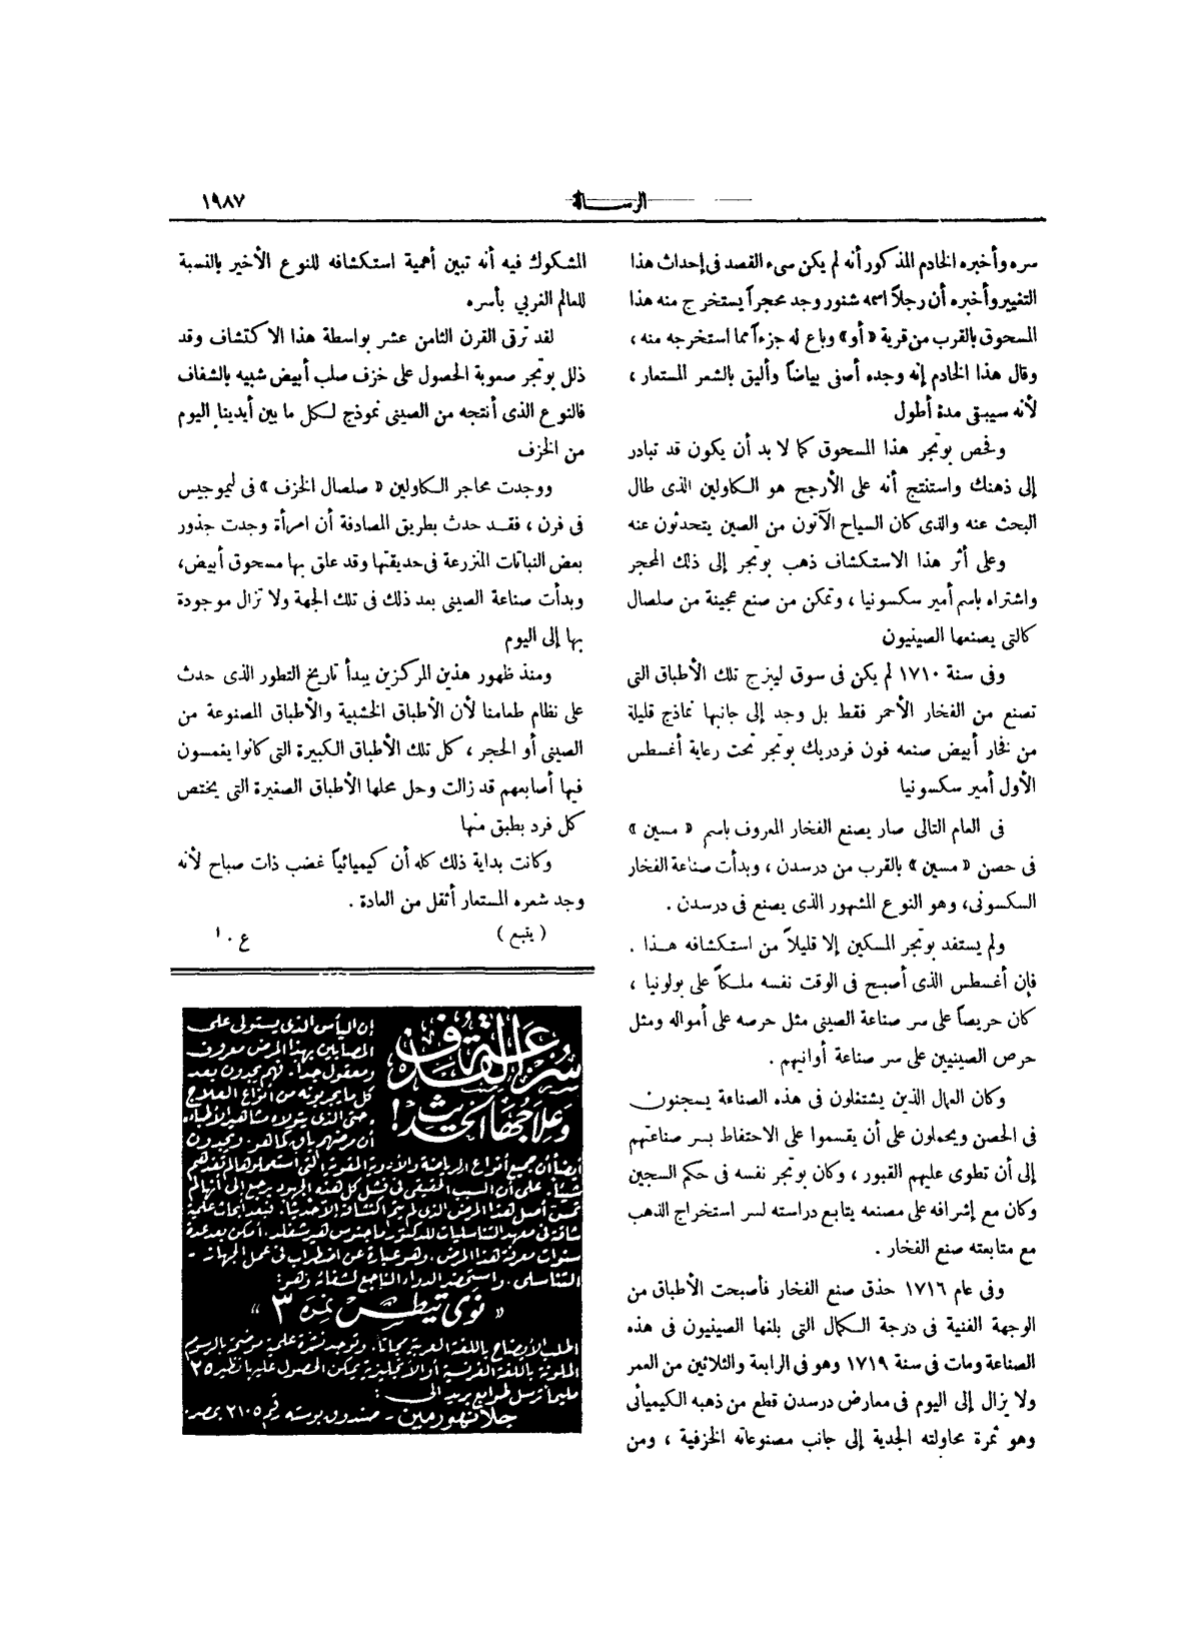 ١٩٨٧
الرسالة
سره وأخبره الخادم المذكور أنه لم يكن سىء القصد فى إحداث هذا
التغيير وأخبره أن رجلاً اسمه شنور وجد محجراً يستخرج منه هذا
المسحوق بالقرب من قرية « أو » وباع له جزءاً مما استخرجه منه ،
وقال هذا الخادم إنه وجده أصفى بياضاً وأليق بالشعر المستعار ،
لأنه سيبقى مدة أطول
وفحص بوتجر هذا المسحوق كما لا بد أن يكون قد تبادر
إلى ذهنك واستنتج أنه على الأرجح هو الكاولين الذى طال
البحث عنه والذى كان السياح الآتون من الصين يتحدثون عنه
وعلى أثر هذا الاستكشاف ذهب بوتجر إلى ذلك المحجر
واشتراه باسم أمير سكسونيا ، وتمكن من صنع عجينة من صلصال
كالتى يصنعها الصينيون
وفى سنة ١٧١٠ لم يكن فى سوق ليبزج تلك الأطباق التى
تصنع من الفخار الأحمر فقط بل وجد إلى جانبها نماذج قليلة
من فخار أبيض صنعه فون فردريك بوتجر تحت رعاية أغسطس
الأول أمير سكسونيا
فى العام التالى صار يصنع الفخار المعروف باسم « مسين »
فى حصن « مسين » بالقرب من درسدن ، وبدأت صناعة الفخار
السكسونى، وهو النوع المشهور الذى يصنع فى درسدن .
ولم يستفد بوتجر المسكين إلا قليلاً من استكشافه هذا .
فإن أغسطس الذى أصبح فى الوقت نفسه ملكاً على بولونيا ،
كان حريصاً على سر صناعة الصينى مثل حرصه على أمواله ومثل
حرص الصينيين على سر صناعة أوانيهم .
وكان العمال الذين يشتغلون فى هذه الصناعة يسجنون
فى الحصن ويحملون على أن يقسموا على الاحتفاظ بسر صناعتهم
إلى أن تطوى عليهم القبور ، وكان بوتجر نفسه فى حكم السجين
وكان مع إشرافه على مصنعه يتابع دراسته لسر استخراج الذهب
مع متابعته صنع الفخار .
وفى عام ١٧١٦ حذق صنع الفخار فأصبحت الأطباق من
الوجهة الفنية فى درجة الكمال التى بلغها الصينيون فى هذه
الصناعة ومات فى سنة ١٧١٩ وهو فى الرابعة والثلاثين من العمر
ولا يزال إلى اليوم فى معارض درسدن قطع من ذهبه الكيميائى
وهو ثمرة محاولته الجدية إلى جانب مصنوعاته الخزفية ، ومن
المشكوك فيه أنه تبين أهمية استكشافه للنوع الأخير بالنسبة
للعالم الغربي بأسره
لقد ترقى القرن الثامن عشر بواسطة هذا الاكتشاف وقد
ذلل بوتجر صعوبة الحصول على خزف صلب أبيض شبيه بالشفاف
فالنوع الذى أنتجه من الصينى نموذج لكل ما بين أيدينا اليوم
من الخزف
ووجدت محاجر الكاولين « صلصال الخزف » فى ليموجيس
فى فرن ، فقد حدث بطريق المصادفة أن امرأة وجدت جذور
بعض النباتات المنزرعة فى حديقتها وقد علق بها مسحوق أبيض،
وبدأت صناعة الصينى بعد ذلك فى تلك الجهة ولا تزال موجودة
بها إلى اليوم
ومنذ ظهور هذين المركزين يبدأ تاريخ التطور الذى حدث
على نظام طعامنا لأن الأطباق الخشبية والأطباق المصنوعة من
الصينى أو الحجر ، كل تلك الأطباق الكبيرة التى كانوا يغمسون
فيها أصابعهم قد زالت وحل محلها الأطباق الصغيرة التى يختص
كل فرد بطبق منها
وكانت بداية ذلك كله أن كيميائياً غضب ذات صباح لأنه
وجد شعره المستعار أثقل من العادة .
( يتبع ) ع . ا
سرعة القذف
وعلاجها الحديث !
إن اليأس الذى يستولى على
المصابين بهذا المرض معروف
ومعقول جداً . فهم يجدون بعد
كل ما يجربونه من أنواع العلاج
وحتى الذى يتولاه مشاهير الأطباء
أن مرضهم باق كما هو . ويجدون
ايضاً أن جميع أنواع الرياضة والأدوية المقوية التى استعملوها لم تفدهم
شيئاً . على أن السبب الحقيقى فى فشل كل هذه الجهود يرجع إلى أنها لم
تمس أصل هذا المرض الذى لم يتم اكتشافه الا حديثاً . فبعد ابحاث علمية
شاقة فى معهد التناسليات للدكتور ماجنوس هيرشفلد . أمكن بعد عدة
سنوات معرفة هذا المرض . وهو عبارة عن اضطراب فى عمل الجهاز
التناسلى . واستحضر الدواء الناجع لشفائه وهو :
« نوى تيطس نمرة ٣ »
اطلب الايضاح باللغة العربية مجاناً . وتوجد نشرة علمية موضحة بالرسوم
الملونة باللغة الفرنسية أو الانجليزية يمكن الحصول عليها نظير ٢٥
مليما ترسل طوابع بريد الى :
جلانهورمين - صندوق بوسته رقم ٢١٠٥ بمصر .